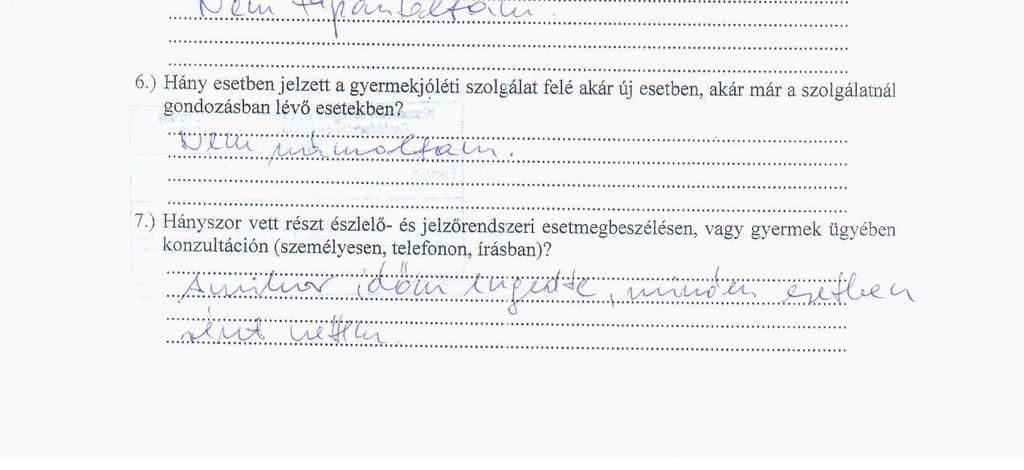 Nem tapasztaltam.
6.) Hány esetben jelzett a gyermekjóléti szolgálat felé akár új esetben, akár már a szolgálatnál
gondozásban lévő esetekben?
Nem számoltam.
7.) Hányszor vett részt észlelő- és jelzőrendszeri esetmegbeszélésen, vagy gyermek ügyében
konzultáción (személyesen, telefonon, írásban)?
Amikor időm engedte, minden esetben
részt vettem.